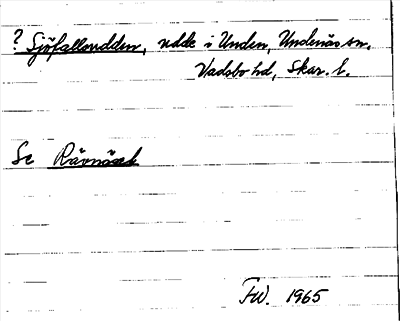 ? Sjöfallsudden, udde i Unden, Undenäs sn,
Vadsbo hd, Skar. l.
Se Rävnäset
FW. 1965